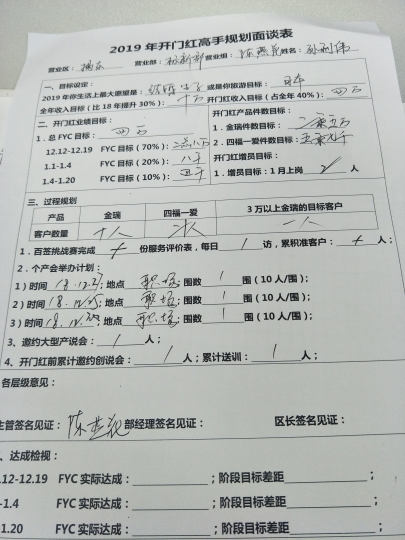 2019 年开门红高手规划面谈表
营业区： 营业部： 营业组： 姓名：
一、目标设定：
2019 年你生活上最大愿望是： 或是你旅游目标： 日本
全年收入目标（比 18 年提升 30%）： 十万 开门红收入目标（占全年 40%）： 四万
二、开门红业绩目标： 开门红产品件数目标：
1．总 FYC 目标： 四万 1．金瑞件数目标：
12.12-12.19 FYC 目标（70%）： 2．四福一爱件数目标：
1.1-1.4 FYC 目标（20%）： 八千 开门红增员目标：
1.4-1.20 FYC 目标（10%）： 四千 1．增员目标：1 月上岗 人
三、过程规划
产品 金瑞 四福一爱 3 万以上金瑞的目标客户
客户数量 十人 一人
1．百签挑战赛完成 份服务评价表，每日 1 访，累积准客户： 人；
2．个产会举办计划：
1）时间 18.12.27；地点 职场；围数 1 围（10 人/围）；
2）时间 ；地点 职场；围数 1 围（10 人/围）；
3）时间 ；地点 职场；围数 1 围（10 人/围）；
3、邀约大型产说会： 1 人；
4、开门红前累计邀约创说会： 1 人；累计送训： 1 人；
各层级意见：
主管签名见证： 部经理签名见证： 区长签名见证：
、达成检视：
.12-12.19 FYC 实际达成： ；阶段目标差距 ；
-1.4 FYC 实际达成： ；阶段目标差距 ；
1.20 FYC 实际达成： ；阶段目标差距 ；